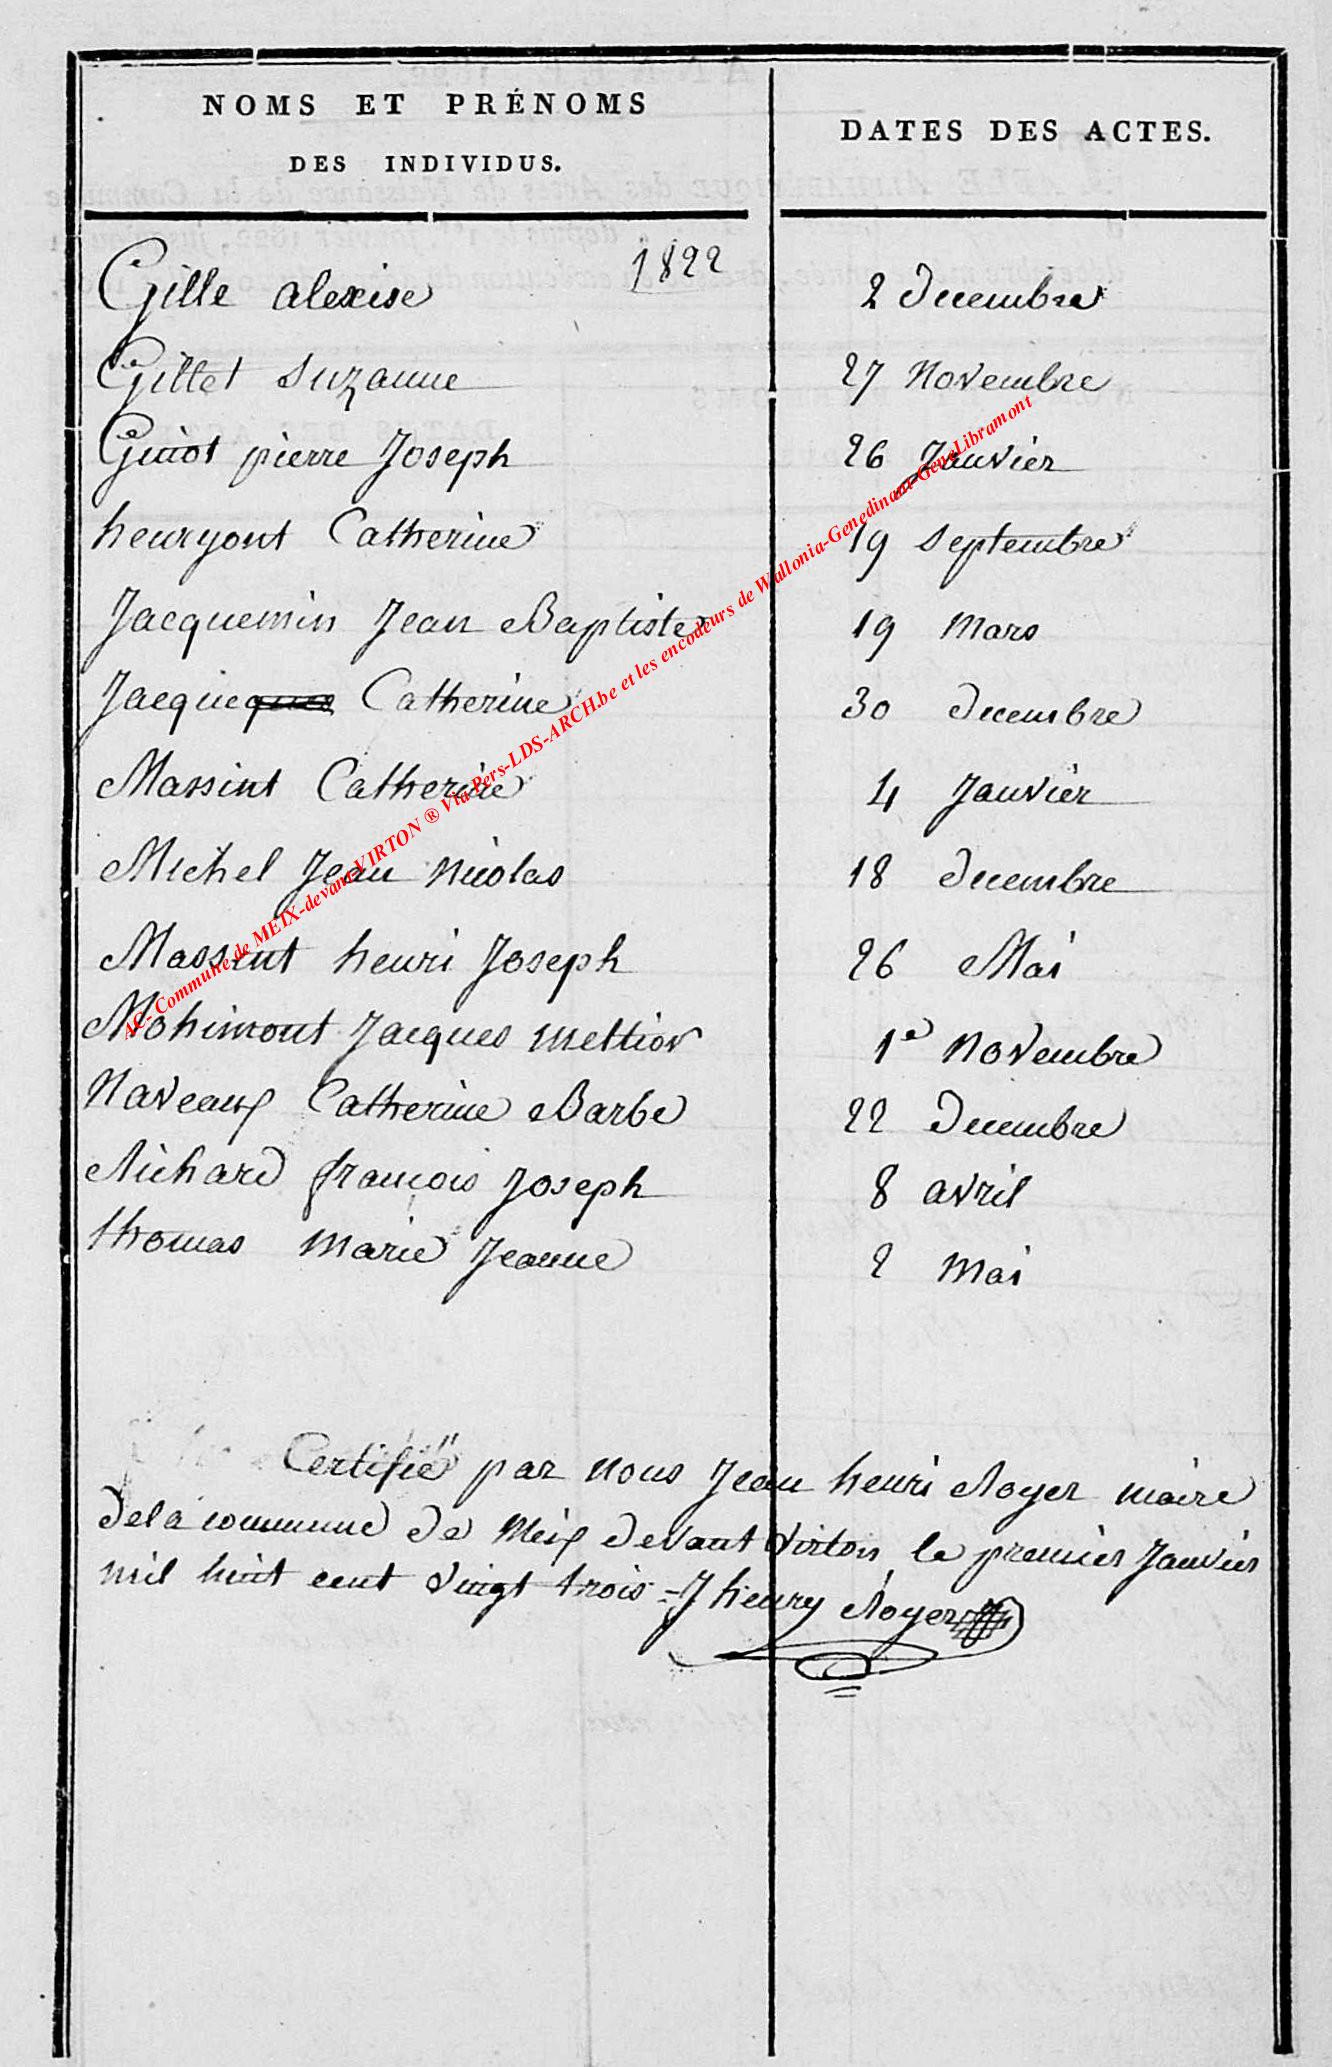 NOMS ET PRÉNOMS
DES INDIVIDUS.
DATES DES ACTES.
1822
Gille alexise 2 Decembre
Gillet Suzanne 27 Novembre
Guiot pierre Joseph 26 Janvier
henryont Catherine 19 Septembre
Jacquemin Jean Baptiste 19 Mars
Catherine 30 decembre
Massint Catherine 4 Janvier
Michel Jean Nicolas 18 decembre
Massint henri Joseph 26 Mai
Mohimont Jacques 1e Novembre
Naveaux Catherine Barbe 22 Decembre
Richard françois Joseph 8 avril
thomas Marie Jeanne 2 Mai
Certifié par nous Jean henri Royer maire
de la commune de Meix devant Virton le premier Janvier
mil huit cent vingt trois = J henry Royer
AC- Commune de MEIX-devant-VIRTON ® Via Pers-LDS-ARCH.be et les encodeurs de Wallonia-Genedinant-GeneLibramont